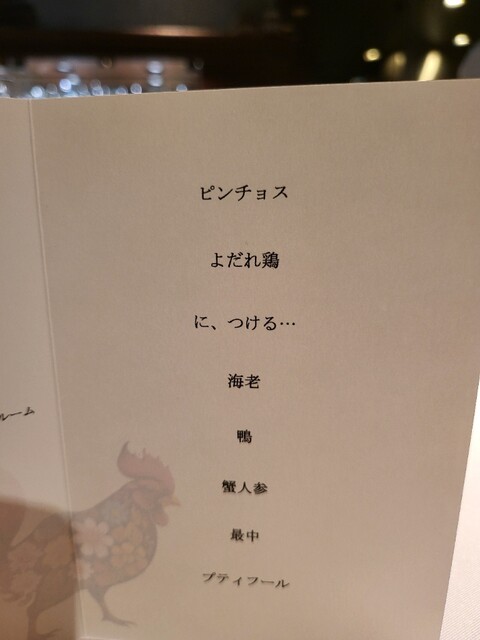 ピンチョス
よだれ鶏
に、つける…
海老
鴨
蟹人参
最中
プティフール
ルーム